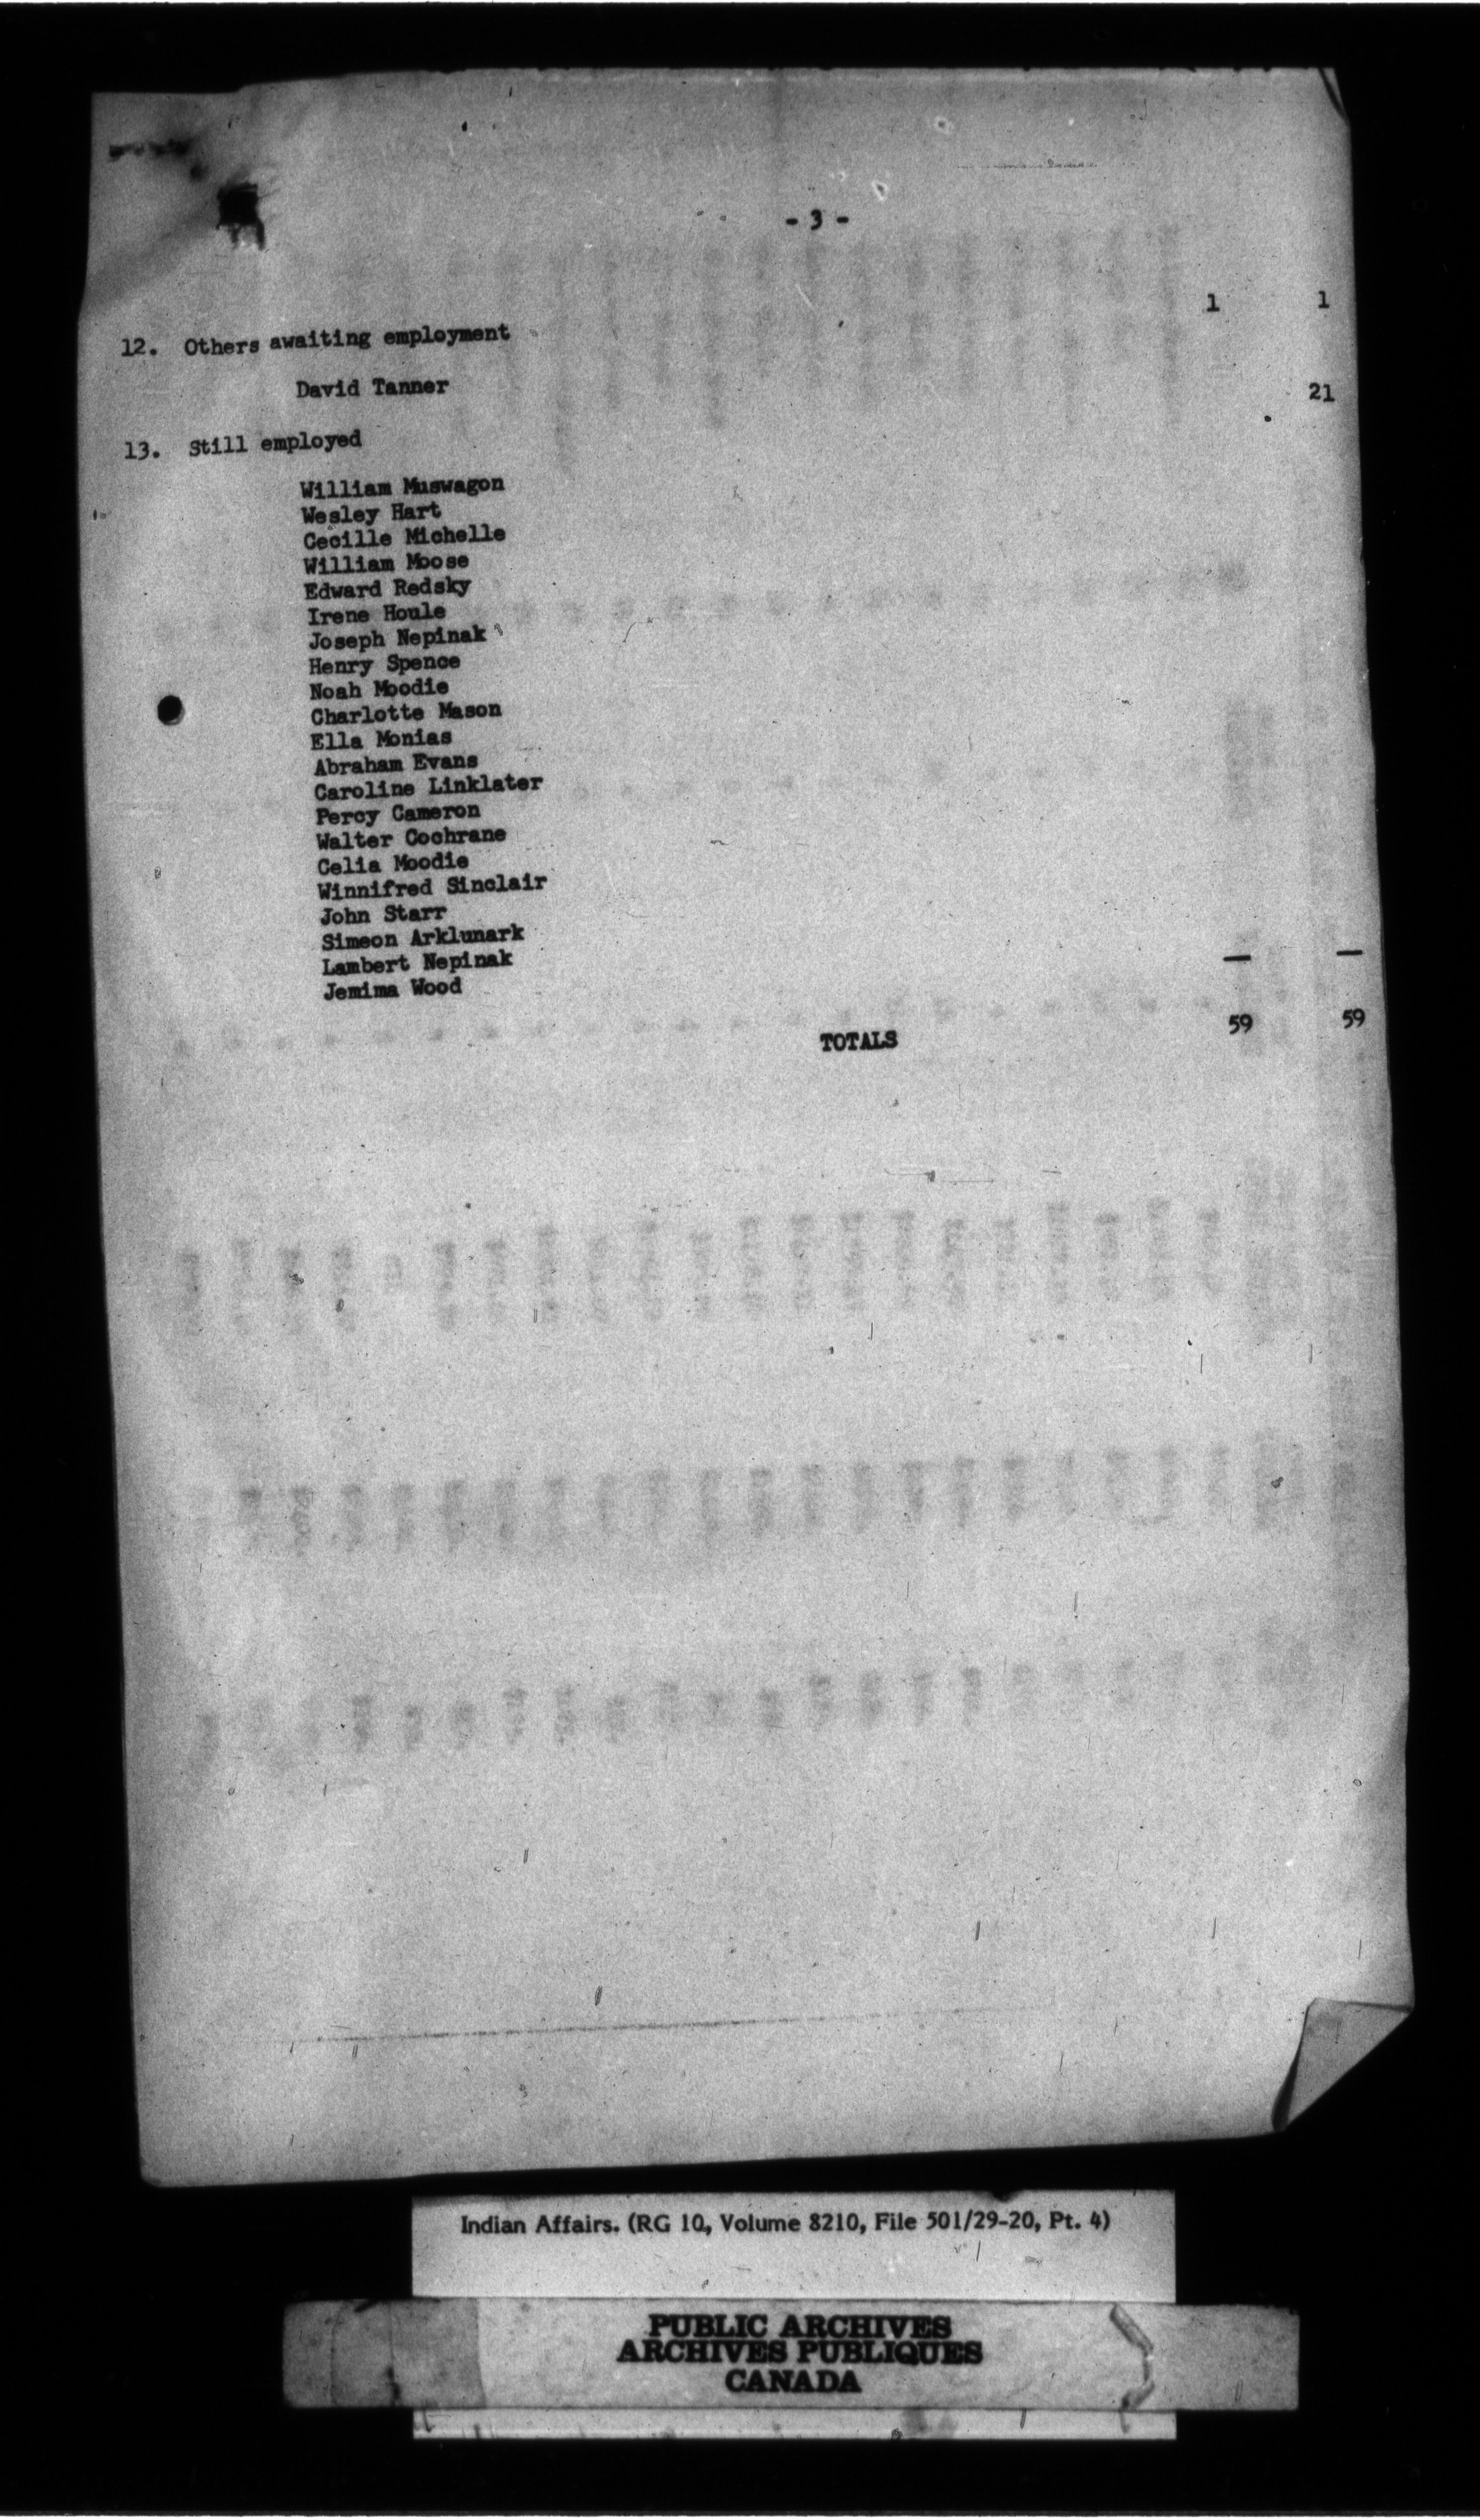 - 3 -
12. Others awaiting employment 1 1
David Tanner
13. Still employed 21
William Muswagon
Wesley Hart
Cecille Michelle
William Moose
Edward Redsky
Irene Houle
Joseph Nepinak
Henry Spence
Noah Moodie
Charlotte Mason
Ella Monias
Abraham Evans
Caroline Linklater
Percy Cameron
Walter Cochrane
Celia Moodie
Winnifred Sinclair
John Starr
Simeon Arklunark
Lambert Nepinak
Jemima Wood
TOTALS 59 59
Indian Affairs. (RG 10, Volume 8210, File 501/29-20, Pt. 4)
PUBLIC ARCHIVES
ARCHIVES PUBLIQUES
CANADA